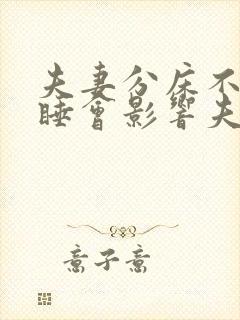 夫妻分床不
睡会影響夫
意子意